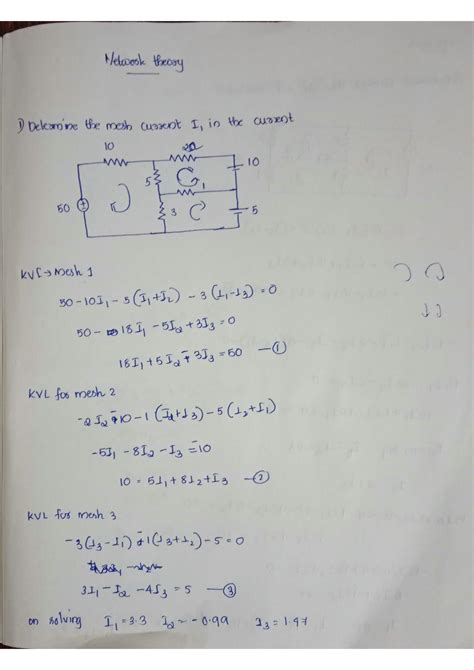 Network theory
1) Determine the mesh current I₁ in the current
10
2Ω
10
5
1
50
3
5
KVL → Mesh 1
50 - 10I₁ - 5(I₁+I₂) - 3(I₁-I₃) = 0
50 - 18I₁ - 5I₂ + 3I₃ = 0
18I₁ + 5I₂ - 3I₃ = 50 — ①
KVL for mesh 2
-2I₂ + 10 - 1(I₂+I₃) - 5(I₂+I₁)
-5I₁ - 8I₂ - I₃ = -10
10 = 5I₁ + 8I₂ + I₃ — ②
KVL for mesh 3
-3(I₃-I₁) - 1(I₃+I₂) - 5 = 0
3I₁ - I₂ - 4I₃ = 5 — ③
on solving I₁ = 3.3 I₂ = -0.99 I₃ = 1.47